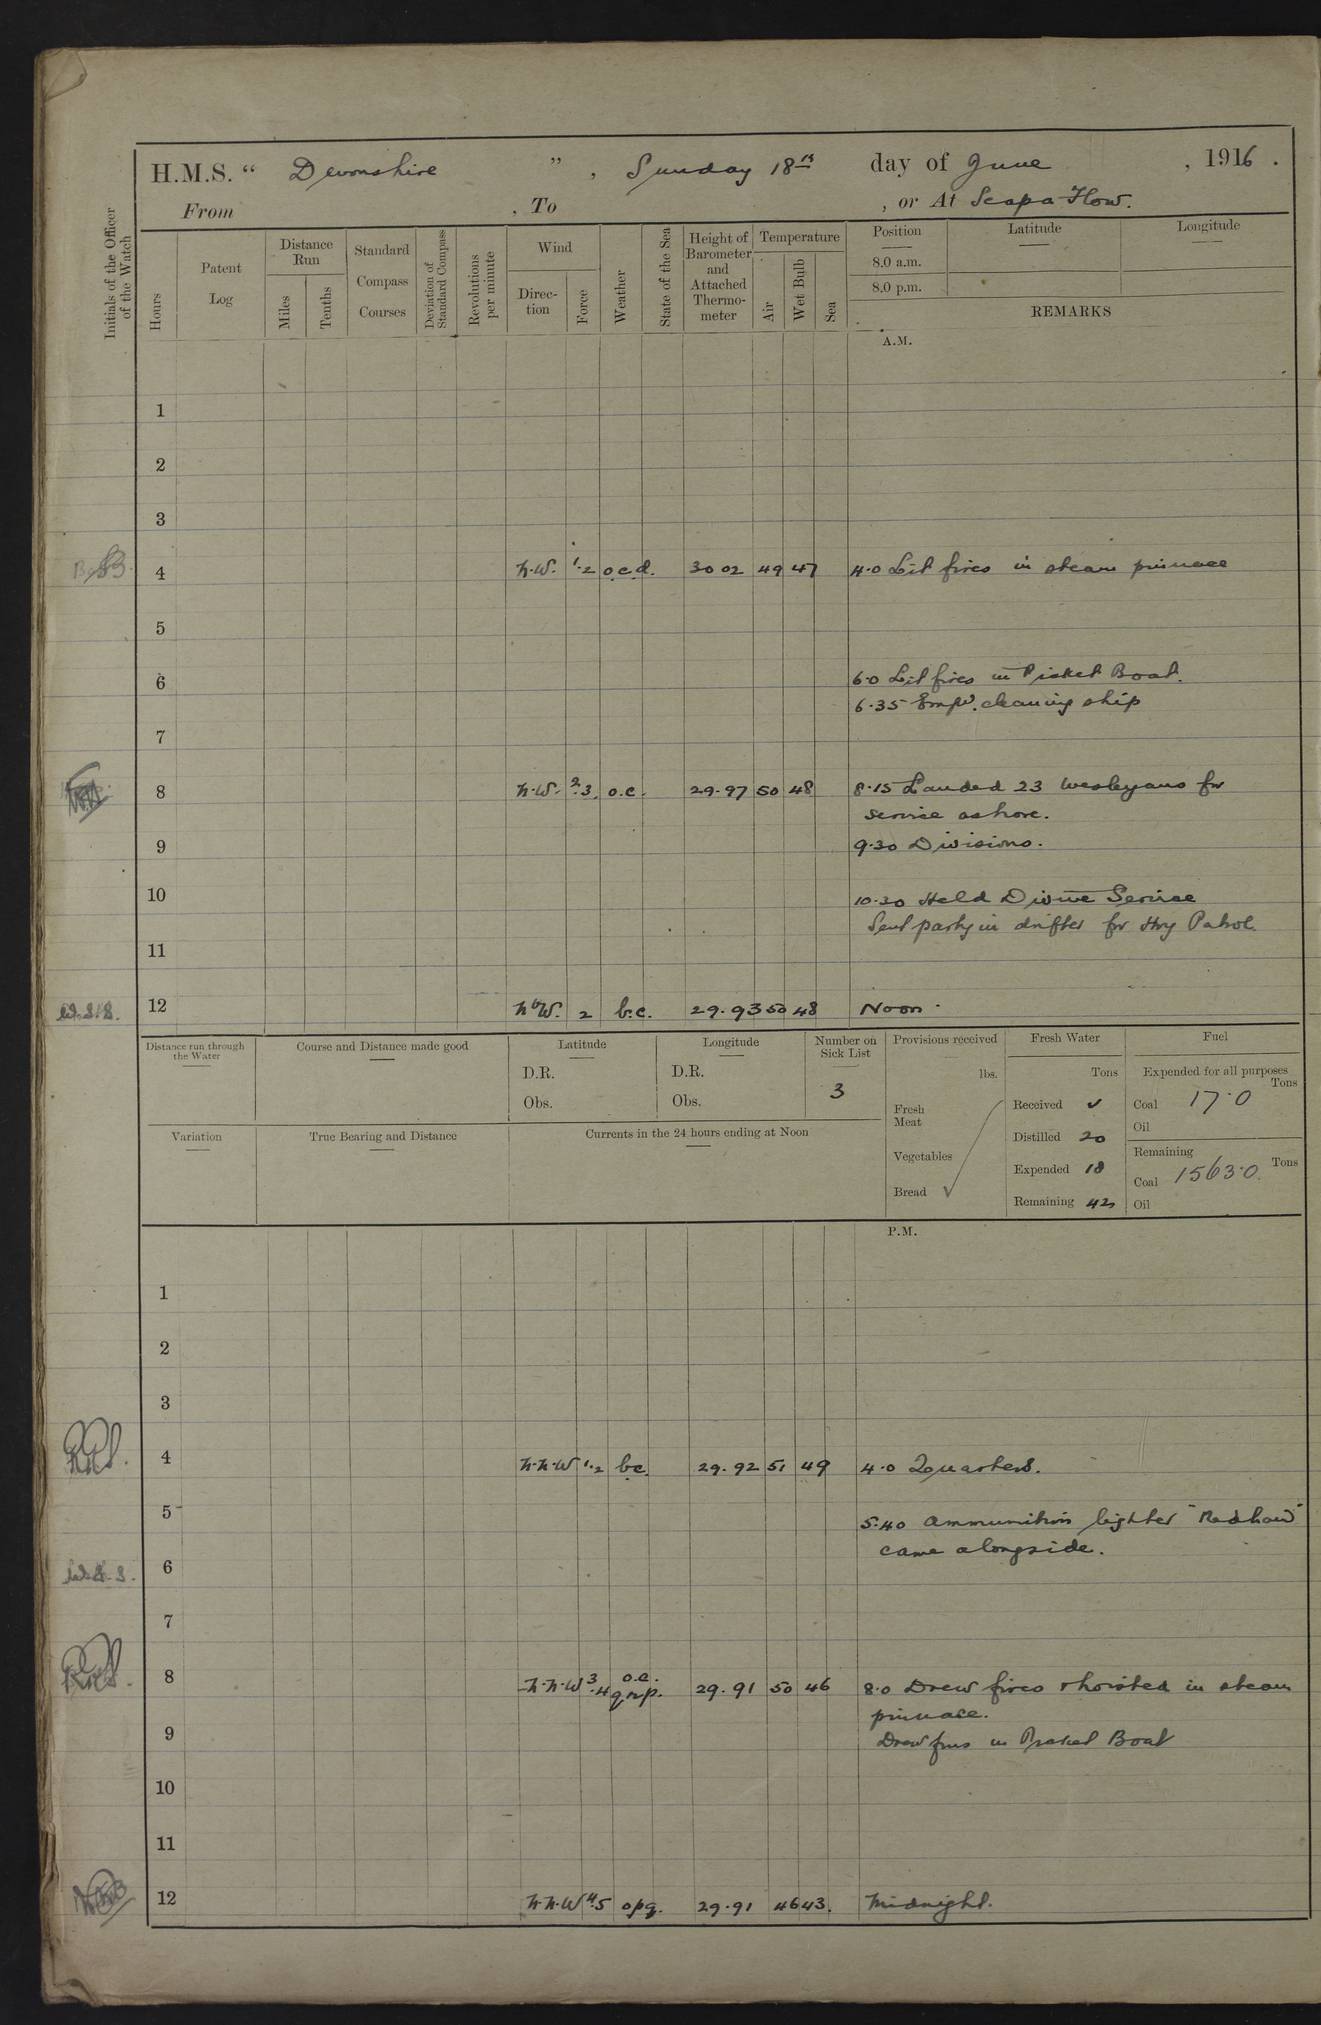 H.M.S. “ Devonshire ” , Sunday 18th day of June , 1916 .
From , To , or At Scapa Flow.
Initials of the Officer of the Watch
Hours
Patent Log
Distance Run
Miles
Tenths
Standard Compass Courses
Deviation of Standard Compass
Revolutions per minute
Wind
Direction
Force
Weather
State of the Sea
Height of Barometer and Attached Thermometer
Temperature
Air
Wet Bulb
Sea
Position
8.0 a.m.
8.0 p.m.
Latitude
Longitude
REMARKS
A.M.
1
2
3
4 N.W. 1.2 o.c.d. 30 02 49 47 4.0 Lit fires in steam pinnace
5
6 6.0 Lit fires in Picket Boat.
6.35 Empd. cleaning ship
7
8 N.W. 2.3. o.c. 29.97 50 48 8.15 Landed 23 Wesleyans for
service ashore.
9 9.30 Divisions.
10 10.30 Held Divine Service
Sent party in drifter for Hoy Patrol.
11
12 NbW. 2 b.c. 29.93 50 48 Noon.
Distance run through the Water
Course and Distance made good
Latitude
D.R.
Obs.
Longitude
D.R.
Obs.
Number on Sick List
3
Provisions received
lbs.
Fresh Meat
Vegetables
Bread
Fresh Water
Tons
Received ✓
Distilled 20
Expended 18
Remaining 42
Fuel
Expended for all purposes
Tons
Coal 17.0
Oil
Remaining
Tons
Coal 1563.0.
Oil
Variation
True Bearing and Distance
Currents in the 24 hours ending at Noon
P.M.
1
2
3
4 N.N.W 1.2 bc. 29.92 51 49 4.0 Quarters.
5 5.40 Ammunition lighter
came alongside.
6
7
8 N.N.W 3.4 o.c. q.r.p. 29.91 50 46 8.0 Drew fires & hoisted in steam
pinnace.
9 Drew fires in Picket Boat
10
11
12 N.N.W 4.5 opq. 29.91 46 43. Midnight.